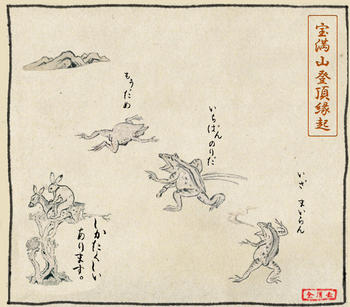 宝満山登頂縁起
いざ まいらん
いちばんのりだ
もうだめ
しかたくしい
あります。